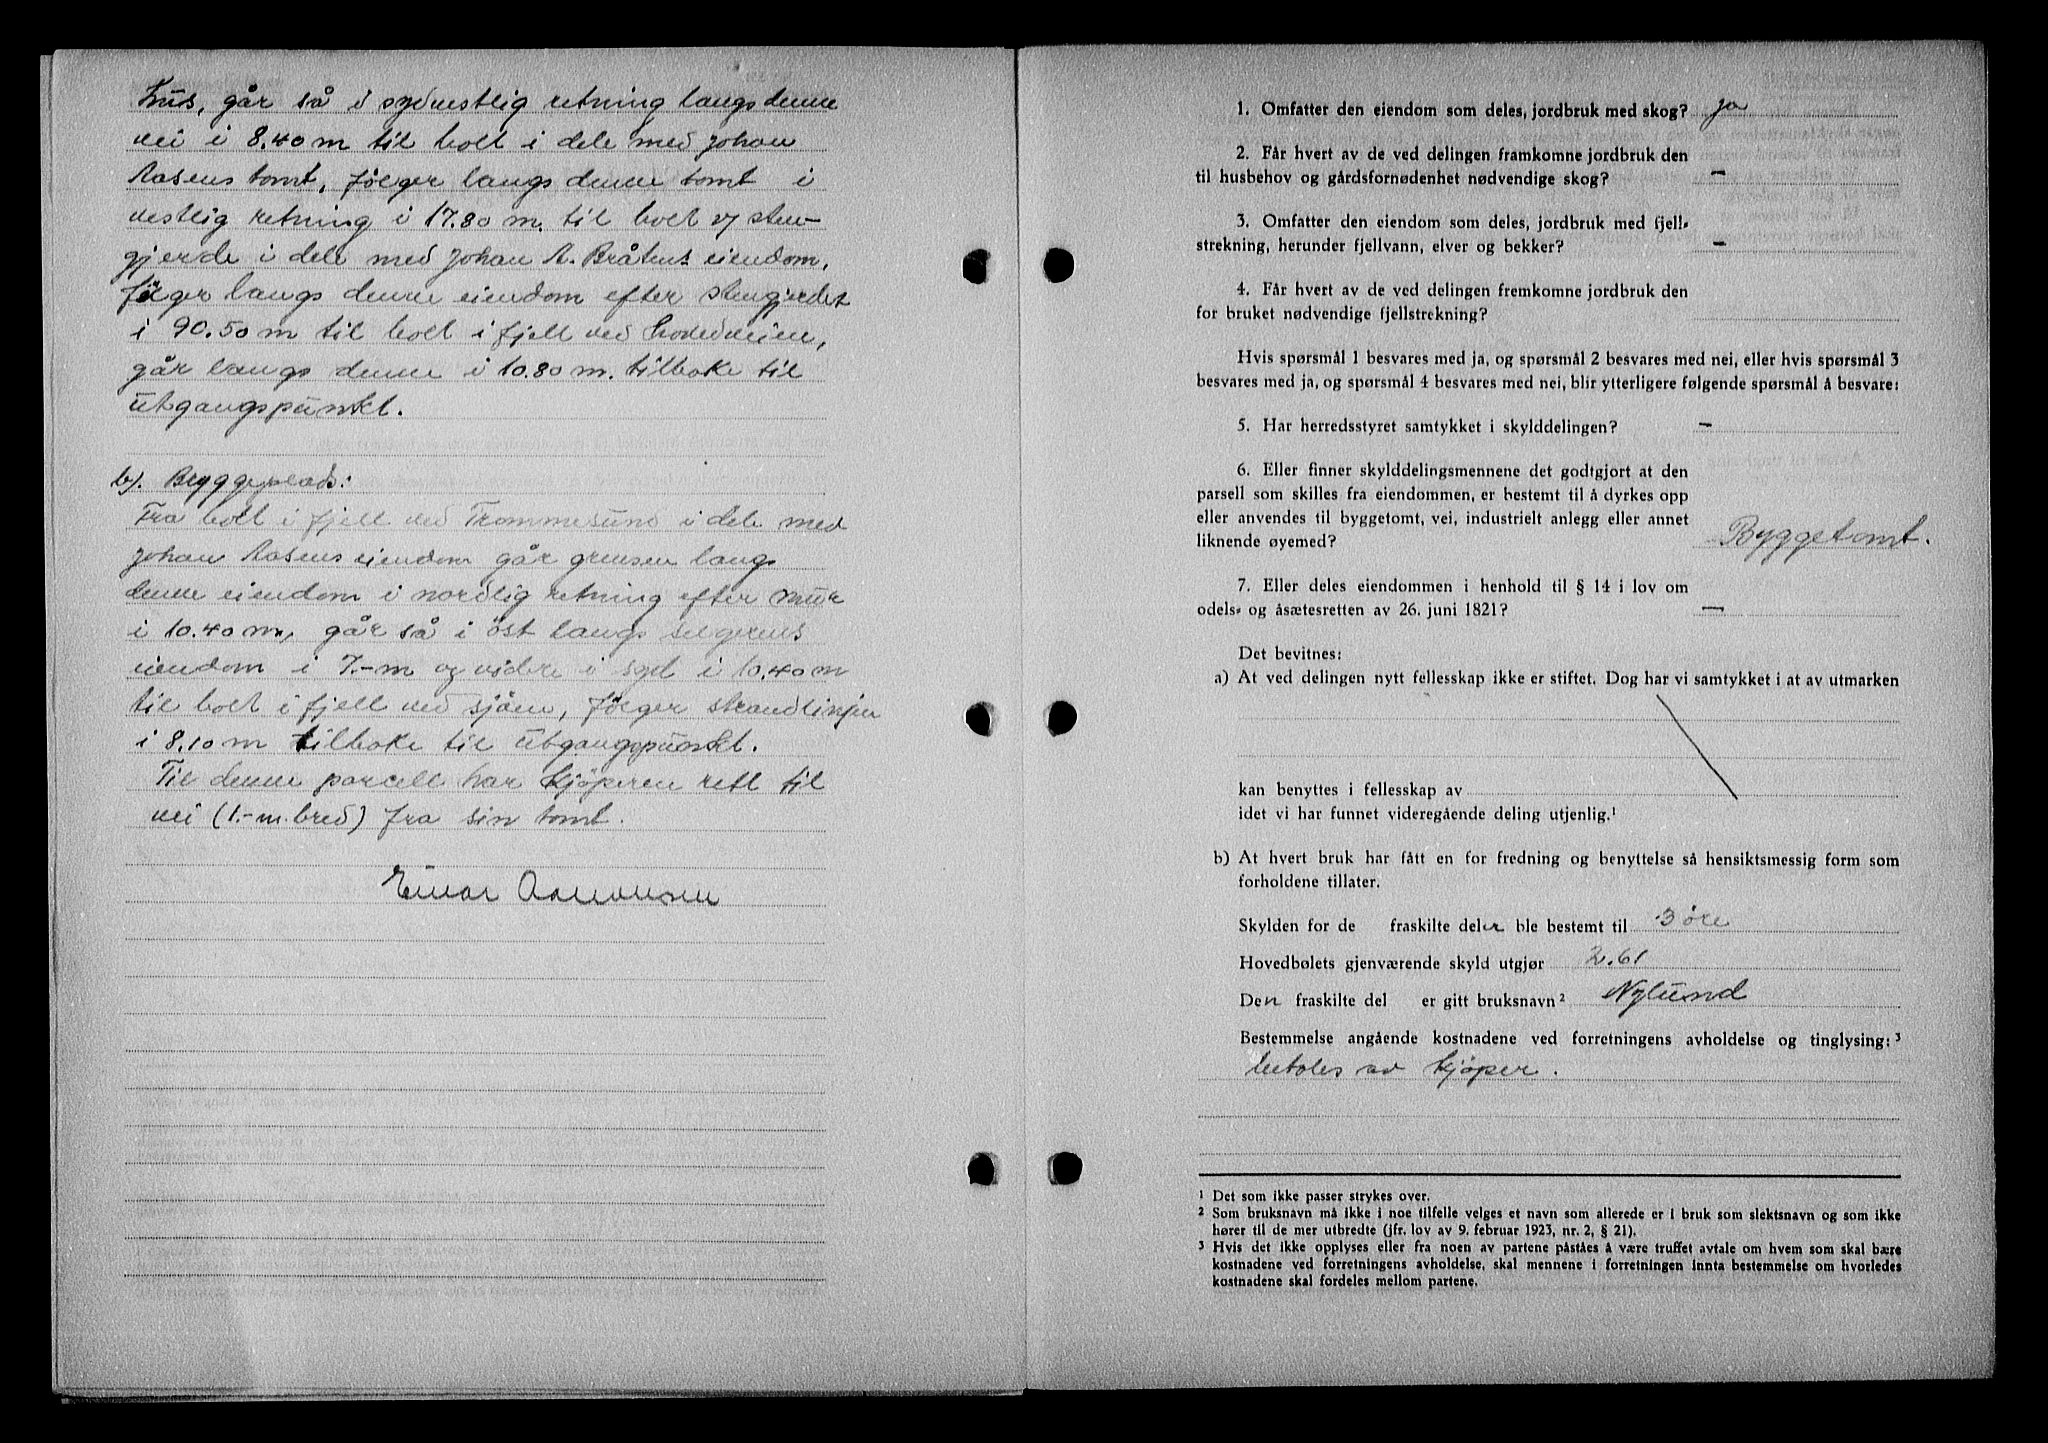 hus, går så i sydvestlig retning langs denne
vei i 8.40 m til bolt i dele med Johan
Aasens tomt, følger langs denne tomt i
vestlig retning i 17.80 m. til bolt v/ sten-
gjerde i dele med Johan A. Bråtens eiendom,
følger langs denne eiendom efter stengjerdet
i 90.50 m til bolt i fjell ved hovedveien,
går langs denne i 10.80 m. tilbake til
utgangspunkt.
b). Bryggeplads:
Fra bolt i fjell ved Trommesund i dele med
Johan Aasens eiendom går grensen langs
denne eiendom i nordlig retning efter mur
i 10.40 m, går så i öst langs selgerens
eiendom i 7.-m og videre i syd i 10.40 m
til bolt i fjell ved sjöen, fölger strandlinjen
i 8.10 m tilbake til utgangspunkt.
Til denne parcell har kjöperen rett til
vei (1.-m. bred) fra sin tomt.
Einar Asmundsen
1. Omfatter den eiendom som deles, jordbruk med skog? ja
2. Får hvert av de ved delingen framkomne jordbruk den
til husbehov og gårdsfornødenhet nødvendige skog? —
3. Omfatter den eiendom som deles, jordbruk med fjell-
strekning, herunder fjellvann, elver og bekker? —
4. Får hvert av de ved delingen fremkomne jordbruk den
for bruket nødvendige fjellstrekning?
Hvis spørsmål 1 besvares med ja, og spørsmål 2 besvares med nei, eller hvis spørsmål 3
besvares med ja, og spørsmål 4 besvares med nei, blir ytterligere følgende spørsmål å besvare:
5. Har herredsstyret samtykket i skylddelingen? —
6. Eller finner skylddelingsmennene det godtgjort at den
parsell som skilles fra eiendommen, er bestemt til å dyrkes opp
eller anvendes til byggetomt, vei, industrielt anlegg eller annet
liknende øyemed? Byggetomt.
7. Eller deles eiendommen i henhold til § 14 i lov om
odels- og åsætesretten av 26. juni 1821? —
Det bevitnes:
a) At ved delingen nytt fellesskap ikke er stiftet. Dog har vi samtykket i at av utmarken
kan benyttes i fellesskap av
idet vi har funnet videregående deling utjenlig.¹
b) At hvert bruk har fått en for fredning og benyttelse så hensiktsmessig form som
forholdene tillater.
Skylden for de fraskilte deler ble bestemt til 3 öre
Hovedbølets gjenværende skyld utgjør 2.61
Den fraskilte del er gitt bruksnavn² Nylund
Bestemmelse angående kostnadene ved forretningens avholdelse og tinglysing:³
betales av kjöper.
¹ Det som ikke passer strykes over.
² Som bruksnavn må ikke i noe tilfelle velges et navn som allerede er i bruk som slektsnavn og som ikke
hører til de mer utbredte (jfr. lov av 9. februar 1923, nr. 2, § 21).
³ Hvis det ikke opplyses eller fra noen av partene påståes å være truffet avtale om hvem som skal bære
kostnadene ved forretningens avholdelse, skal mennene i forretningen innta bestemmelse om hvorledes
kostnadene skal fordeles mellom partene.